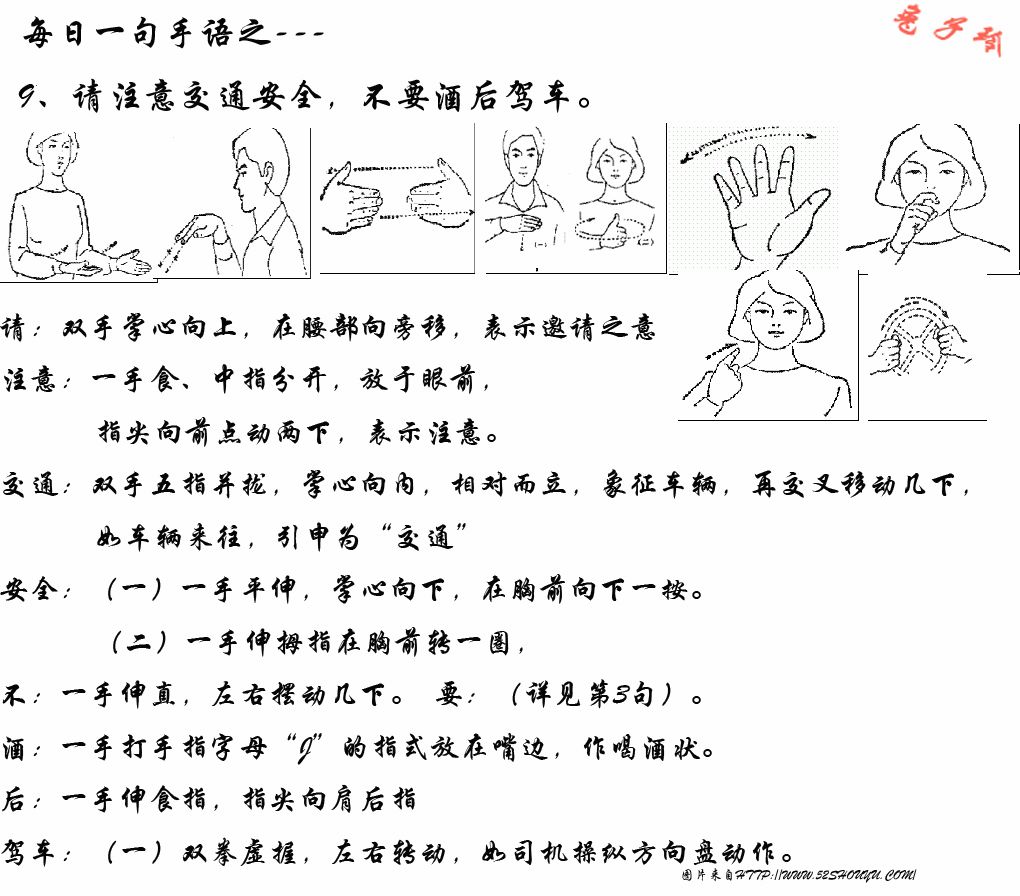 每日一句手语之---
9、请注意交通安全，不要酒后驾车。
(一)
(二)
请：双手掌心向上，在腰部向旁移，表示邀请之意
注意：一手食、中指分开，放于眼前，
指尖向前点动两下，表示注意。
交通：双手五指并拢，掌心向内，相对而立，象征车辆，再交叉移动几下，
如车辆来往，引申为“交通”
安全：（一）一手平伸，掌心向下，在胸前向下一按。
（二）一手伸拇指在胸前转一圈，
不：一手伸直，左右摆动几下。 要：（详见第3句）。
酒：一手打手指字母“J”的指式放在嘴边，作喝酒状。
后：一手伸食指，指尖向肩后指
驾车：（一）双拳虚握，左右转动，如司机操纵方向盘动作。
图片来自HTTP://WWW.52SHOUYU.COM/